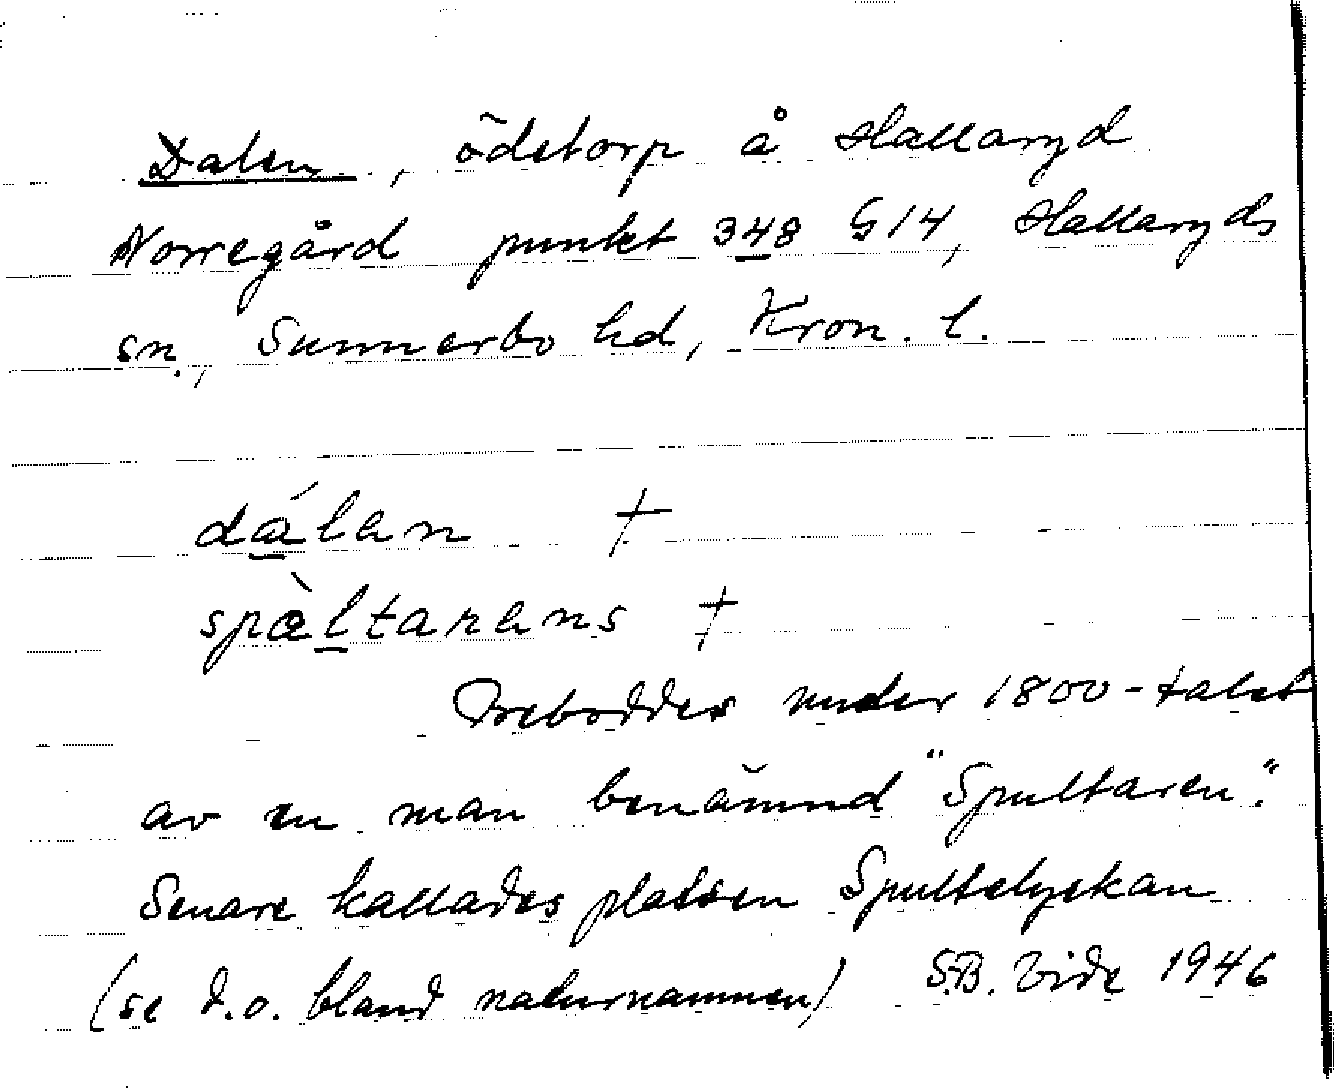 Dalen, ödetorp å Hallaryd
Norregård punkt 348 G14, Hallaryds
sn., Sunnerbo hd, Kron. l.
dálan †
spæ̀ltarans †
Beboddes under 1800-talet
av en man benämnd "Spultaren".
Senare kallades platsen Spultelyckan
(se d.o. bland naturnamnen) S.B. Vide 1946